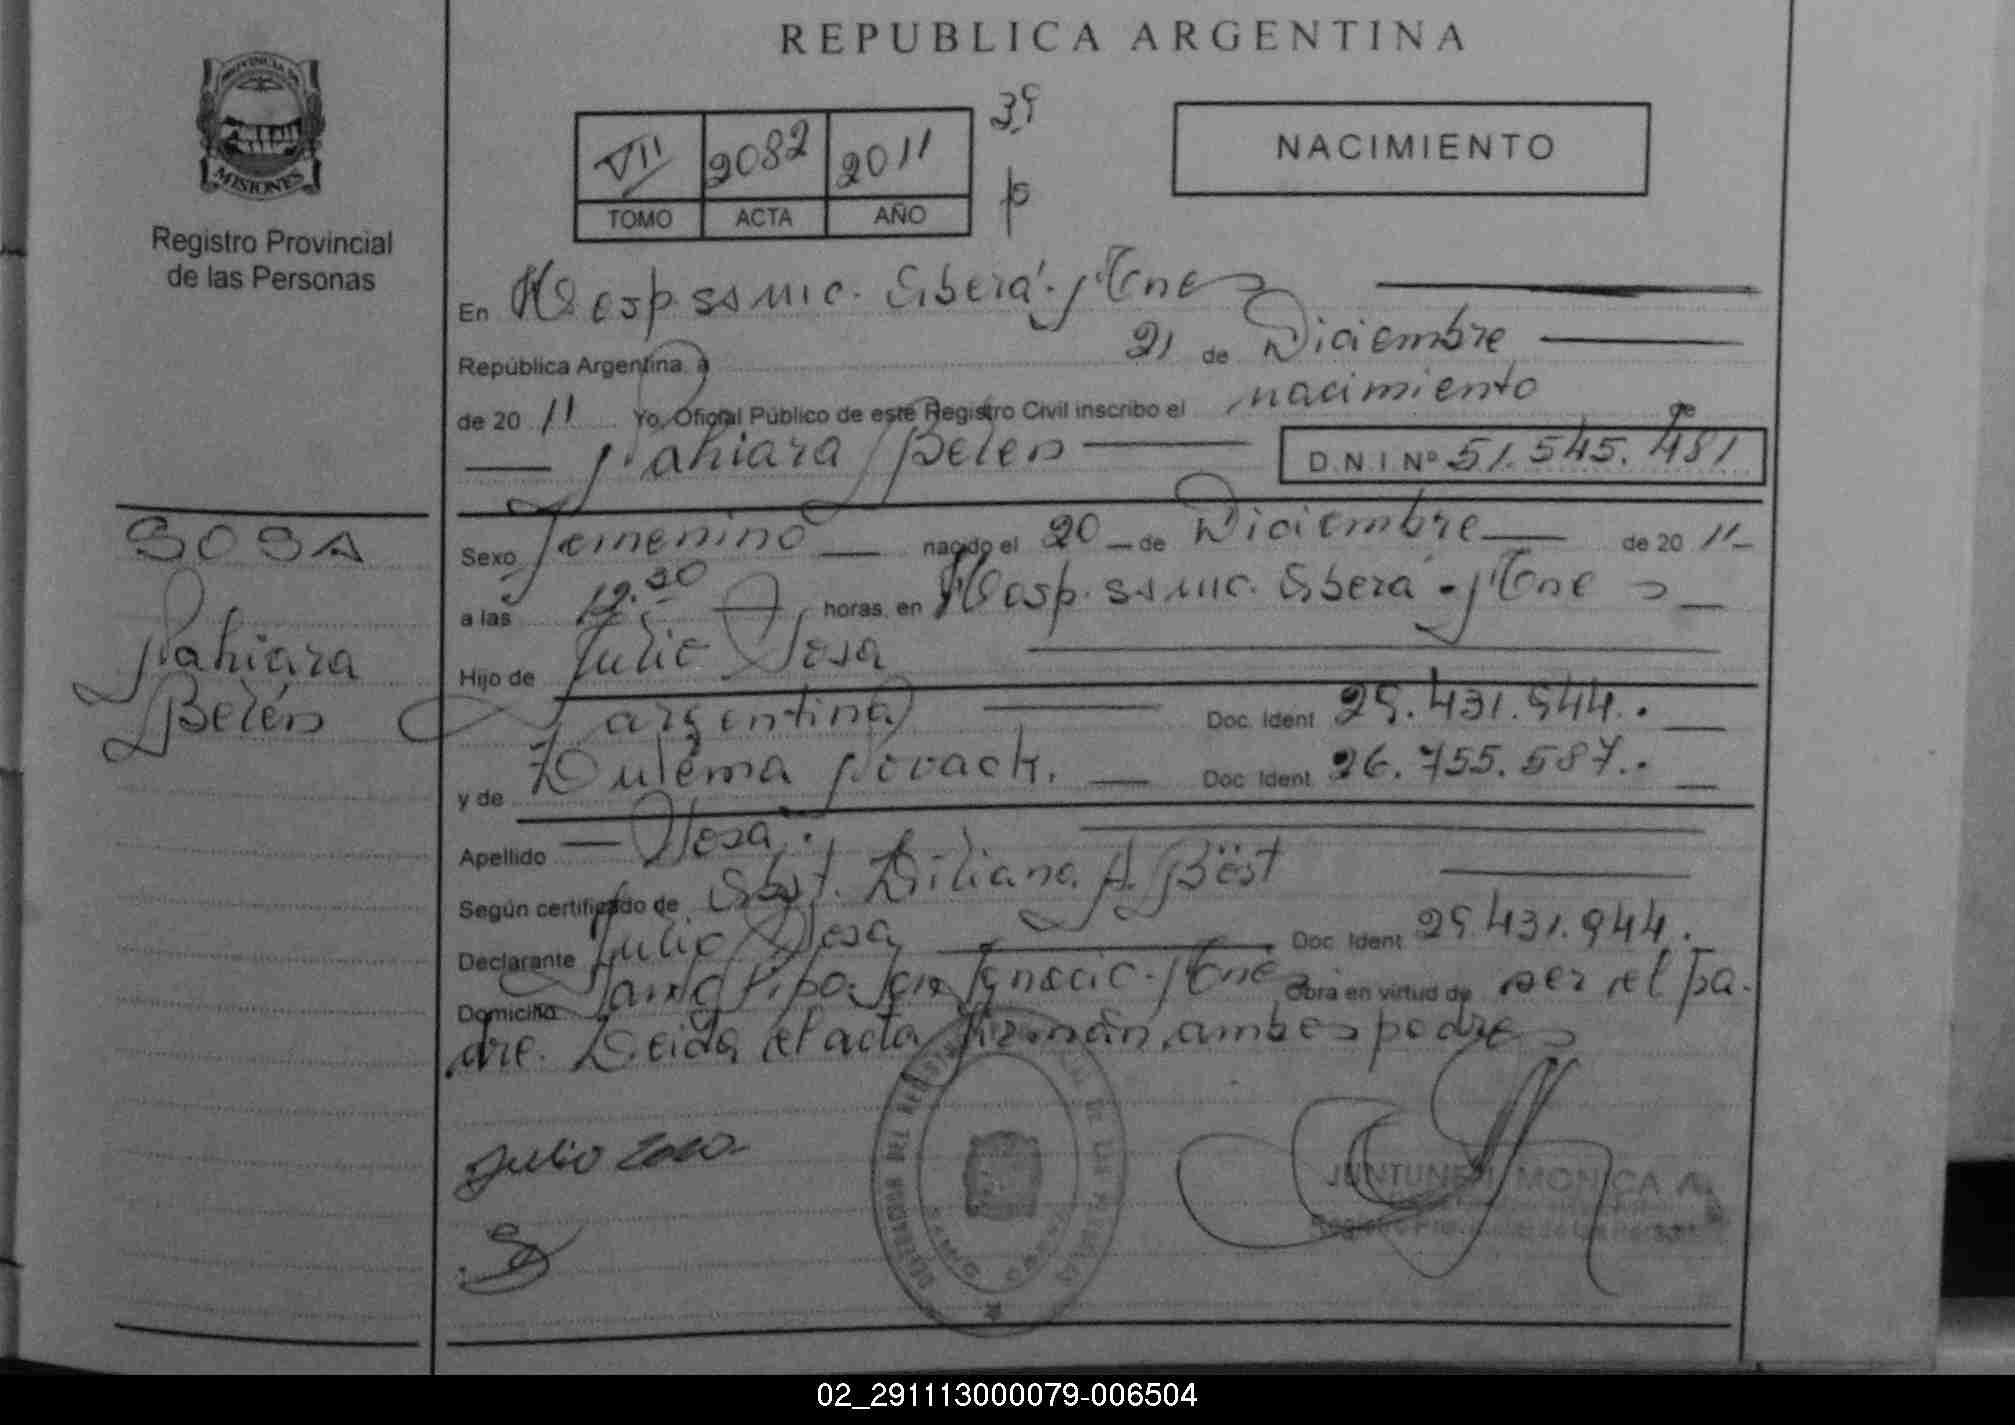 REPUBLICA ARGENTINA
PROVINCIA DE
MISIONES
Registro Provincial
de las Personas
VII 2082 2011
TOMO ACTA AÑO
NACIMIENTO
En Hosp. ss mic. Eberá. Mnes
República Argentina. a 21 de Diciembre
de 20 11 Yo, Oficial Público de este Registro Civil inscribo el nacimiento
de
Nahiara Belén D.N.I Nº 51.545.481
SOSA
Nahiara
Belén
Sexo femenino nacido el 20 de Diciembre de 20 11
a las horas, en Hosp. ss mic. Eberá - Mnes
Hijo de Julio Sosa
argentina Doc. Ident 29.431.944.
y de Zulema Novack. Doc. Ident 26.755.587.
Apellido Sosa.
Según certificado de Obst. Liliana A. Bëst
Declarante Julio Sosa Doc. Ident 29.431.944.
Domicilio San Ignacio - Mnes Obra en virtud de ser el pa-
dre. Leida el acta firman ambos padres
Julio
JUNTUNEN MONICA A
02_291113000079-006504